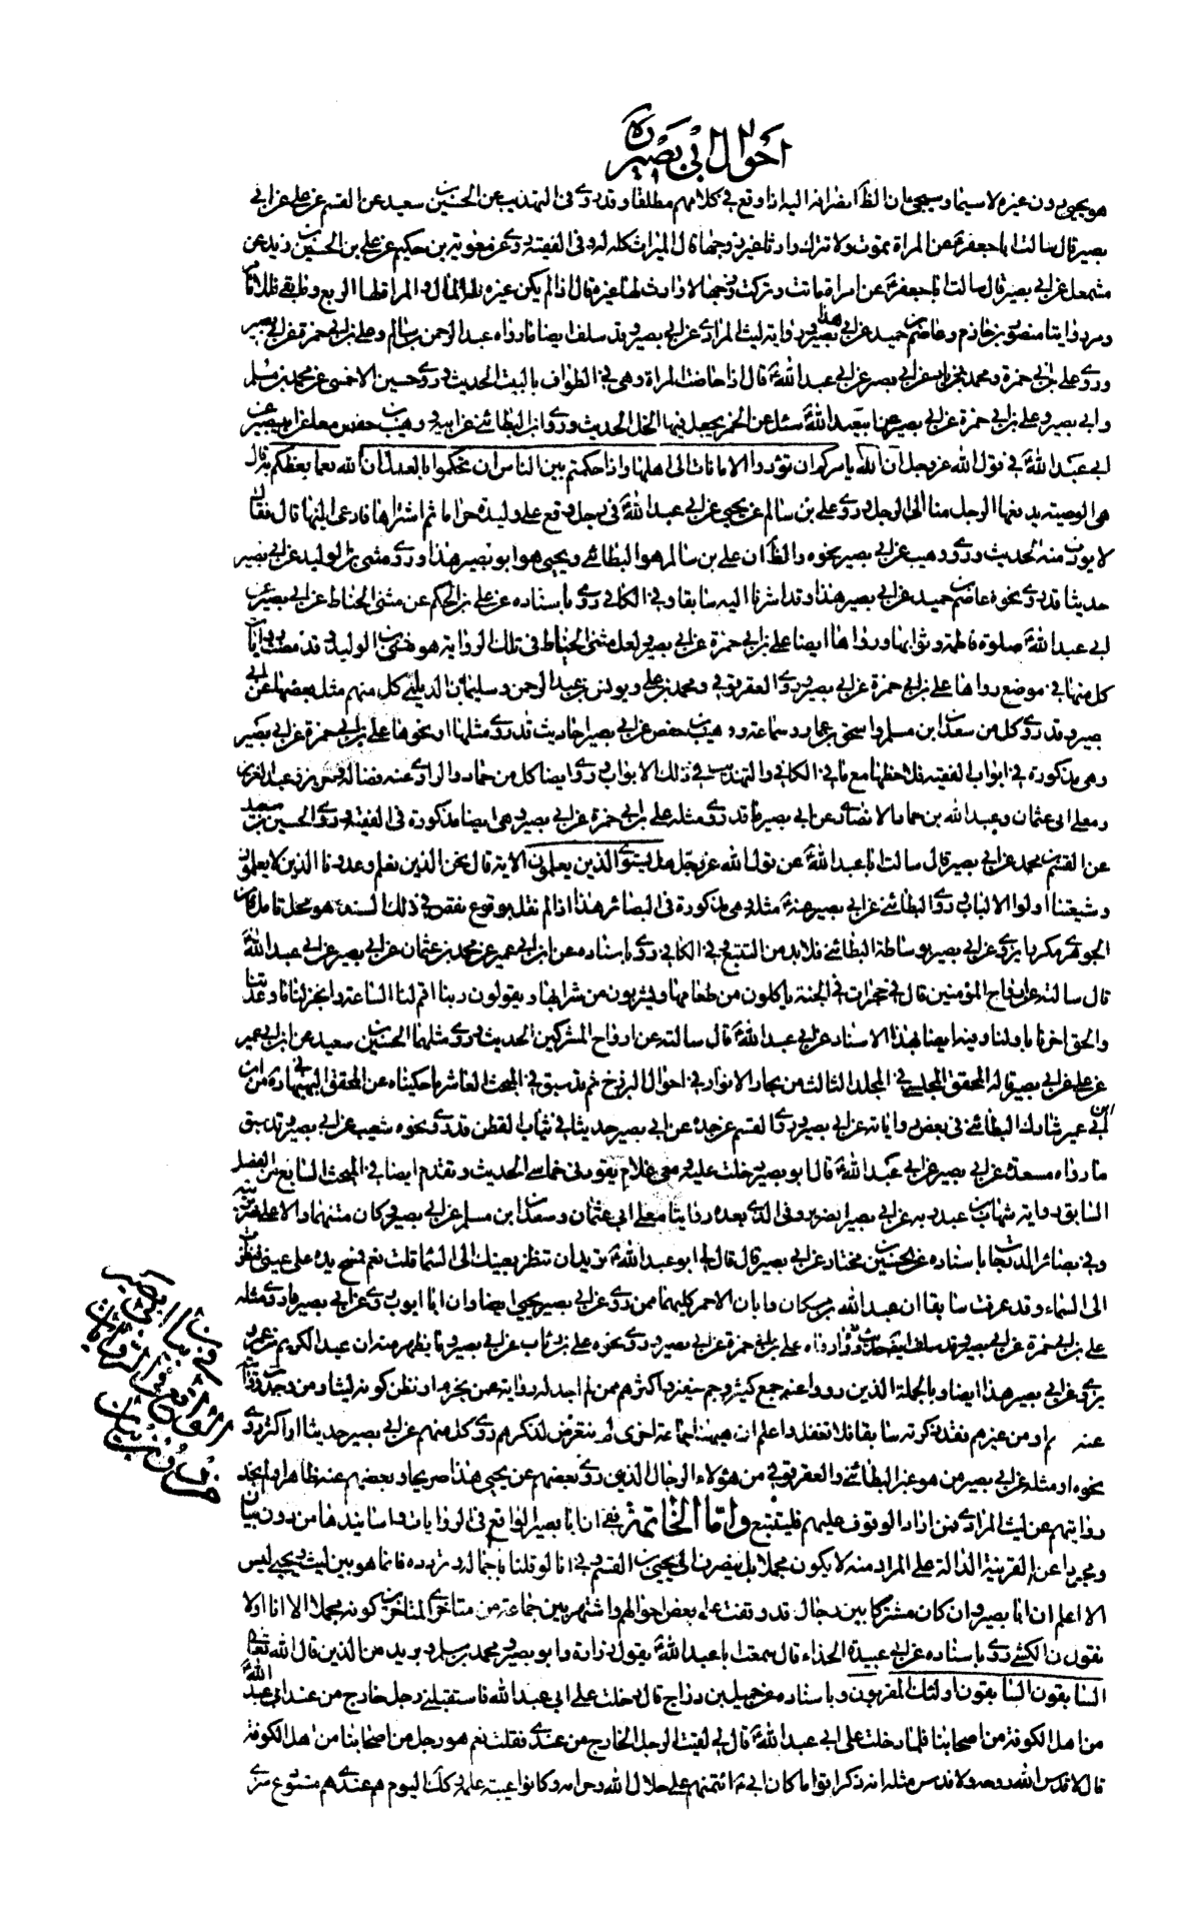 احوال ابی بصیر
هو یحیی دون غیره لاسیما و سیجئ ان الظاهر انصرافه الیه اذا وقع فی کلامهم مطلقا و قد روی فی التهذیب عن الحسین بن سعید عن القسم عن علی عن ابی
بصیر قال سالت ابا جعفر عن المراة تموت ولا تترک وارثا غیر زوجها قال المیراث کله له و فی الفقیه روی عن معویة بن حکیم عن علی بن الحسن بن زید عن
مشمعل عن ابی بصیر قال سالت ابا جعفر عن امراة ماتت و ترکت زوجها لا وارث لها غیره قال اذا لم یکن غیره فله المال والمراة لها الربع وما بقی فللامام
و مر روایتا منصور بن حازم و عاصم بن حمید عن ابی بصیر هذا و روایة لیث المرادی عن ابی بصیر و قد سلف ایضا ما رواه عبد الرحمن بن سالم و علی بن ابی حمزة عن ابی بصیر
وروی علی بن ابی حمزة و محمد عن ابی بصیر عن ابی عبد الله قال اذا حاضت المراة وهی فی الطواف بالبیت الحدیث و روی حسین الاحمسی عن محمد بن مسلم
و ابی بصیر و علی بن ابی حمزة عن ابی بصیر عن ابی عبد الله سئل عن الخمر یجعل فیها الخل الحدیث و روی ابن البطائنی عن ابیه و وهیب بن حفص معا عن ابی بصیر عن
ابی عبد الله فی قول الله عز وجل ان الله یامرکم ان تؤدوا الامانات الی اهلها و اذا حکمتم بین الناس ان تحکموا بالعدل ان الله نعما یعظکم به قال
هی الوصیة یدفعها الرجل منا الی الرجل و روی علی بن سالم عن یحیی عن ابی عبد الله فی رجل وقع علی ولیدة حراما ثم اشتراها فادعی ابنها قال فقال
لا یورث منه الحدیث و روی وهیب عن ابی بصیر نحوه والظ ان علی بن سالم هو البطائنی و یحیی هو ابو بصیر هذا و روی مثنی بن الولید عن ابی بصیر
حدیثا قد روی نحوه عاصم بن حمید عن ابی بصیر هذا و قد اشرنا الیه سابقا و فی الکافی روی باسناده عن علی بن الحکم عن مثنی الحناط عن ابی بصیر عن
ابی عبد الله صلوة فاطمة و ثوابها و رواها ایضا علی بن ابی حمزة عن ابی بصیر و لعل مثنی الحناط فی تلک الروایة هو مثنی بن الولید و قد مضت روایات
کل منها فی موضع رواها علی بن ابی حمزة عن ابی بصیر و روی العقرقوفی و محمد بن علی و یونس بن عبد الرحمن و سلیمان الدیلمی کل منهم مثل بعضها عن ابی
بصیر و قد روی کل من سعدان بن مسلم و اسحق بن عمار و سماعة و وهیب بن حفص عن ابی بصیر احادیث قد روی مثلها او نحوها علی بن ابی حمزة عن ابی بصیر
وهی مذکورة فی ابواب الفقیه فلاحظها مع ما فی الکافی والتهذیب فی ذلک الابواب و روی ایضا کل من حماد والراوی عنه فضالة و عبد العزیز
و معلی ابی عثمان و عبد الله بن حماد الانصاری عن ابی بصیر ما قد روی مثله علی بن ابی حمزة عن ابی بصیر و هی ایضا مذکورة فی الفقیه و روی الحسین بن سعید
عن القسم بن محمد عن ابی بصیر قال سالت ابا عبد الله عن قول الله عز وجل هل یستوی الذین یعلمون الایة قال نحن الذین نعلم و عدونا الذین لا یعلمون
و شیعتنا اولوا الالباب و روی البطائنی عن ابی بصیر عنه مثله و هی مذکورة فی البصائر هذا اذا لم نقل بوقوع نقص فی ذلک السند و هو محل تامل فان
الجوهری مکررا یروی عن ابی بصیر بوساطة البطائنی فلا بد من التتبع و فی الکافی روی باسناده عن ابن ابی عمیر عن محمد بن عثمان عن ابی بصیر عن ابی عبد الله
قال سالته عن ارواح المؤمنین قال فی حجرات فی الجنة یاکلون من طعامها و یشربون من شرابها و یقولون ربنا اقم لنا الساعة و انجز لنا ما وعدتنا
والحق اخرنا باولنا و فیه ایضا بهذا الاسناد عن ابی عبد الله قال سالته عن ارواح المشرکین الحدیث و روی مثلهما الحسین بن سعید عن ابن ابی عمیر
عن علی عن ابی بصیر قاله المحقق المجلسی فی المجلد الثالث من بحار الانوار فی احوال البرزخ ثم قد سبق فی المبحث العاشر ما حکیناه عن المحقق البهبهانی ره من ان ابن
ابی عمیر شارک البطائنی فی بعض روایاته عن ابی بصیر و روی القسم عن جده عن ابی بصیر حدیثا فی ثیاب القطن قد روی نحوه شعیب عن ابی بصیر و قد سبق
ما رواه مسعدة عن ابی بصیر عن ابی عبد الله قال ابو بصیر دخلت علیه و معی غلام یقودنی خماسی الحدیث و تقدم ایضا فی المبحث السابع من الفصل
السابق روایة شهاب بن عبد ربه عن ابی بصیر الضریر و فی الذی بعده روایتا معلی ابی عثمان و سعدان بن مسلم عن ابی بصیر و کان متنهما دالا علی
و فی بصائر الدرجات باسناده عن الحسین بن مختار عن ابی بصیر قال قال لی ابو عبد الله ترید ان تنظر بعینک الی السماء قلت نعم فمسح یده علی عینی فنظرت
الی السماء و قد عرفت سابقا ان عبد الله بن مسکان و ابان الاحمر کلیهما ممن روی عن ابی بصیر یحیی ایضا و ان ابا ایوب روی عن ابی بصیر ما روی مثله
علی بن ابی حمزة عن ابی بصیر و قد سلف ایضا حدیث رواه علی بن رئاب عن ابی بصیر و روی نحوه علی عن ابی بصیر و ما یظهر منه ان عبد الکریم بن عمرو
یروی عن ابی بصیر هذا ایضا و بالجملة الذین رووا عنه جمع کثیر و جم غفیر و اکثرهم ممن لم اجد له روایة عمن یخبر او نظن کونه لیثا و من وجدت روایة
عنه نادر و من غیرهم فقد ذکرته سابقا فلا تغفل و اعلم ان هیهنا جماعة اخری لم نتعرض لذکرهم روی کل منهم عن ابی بصیر حدیثا او اکثر روی
نحوه او مثله عن ابی بصیر من هو غیر البطائنی والعقرقوفی من هؤلاء الرجال الذین روی بعضهم عن یحیی هذا صریحا و بعضهم عنه ظاهرا و لم اجد
روایتهم عن لیث المرادی فمن اراد الوقوف علیهم فلیتتبع و اما الخاتمة ففی ان ابا بصیر الواقع فی الروایات و اسانیدها من دون بیان
و مجردا عن القرینة الدالة علی المراد منه لا یکون مجملا بل ینصرف الی یحیی بن القسم و فی انا لو قلنا باجماله و تردده فانما هو بین لیث و یحیی لیس
الا اعلم ان ابا بصیر و ان کان مشترکا بین رجال قد وقفت علی بعض احوالهم و اشتهر بین جماعة من متاخری المتاخرین کونه مجملا الا انا اولا
نقول ان الکشی روی باسناده عن ابی عبیدة الحذاء قال سمعت ابا عبد الله یقول زرارة و ابو بصیر و محمد بن مسلم و برید من الذین قال الله تعالی
السابقون السابقون اولئک المقربون و باسناده عن جمیل بن دراج قال دخلت علی ابی عبد الله فاستقبلنی رجل خارج من عند ابی عبد الله
من اهل الکوفة من اصحابنا فلما دخلت علی ابی عبد الله قال لی لقیت الرجل الخارج من عندی فقلت نعم هو رجل من اصحابنا من اهل الکوفة
قال لا قدس الله روحه ولا قدس مثله انه ذکر اقواما کان ابی ائتمنهم علی حلال الله و حرامه و کانوا عیبة علمه و کذلک الیوم هم عندی هم مستودع سری
فی بیان ان ابی بصیر
الواقع فی الروایات
من دون بیان